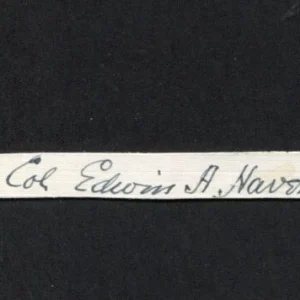 Col Edwin A. Havo